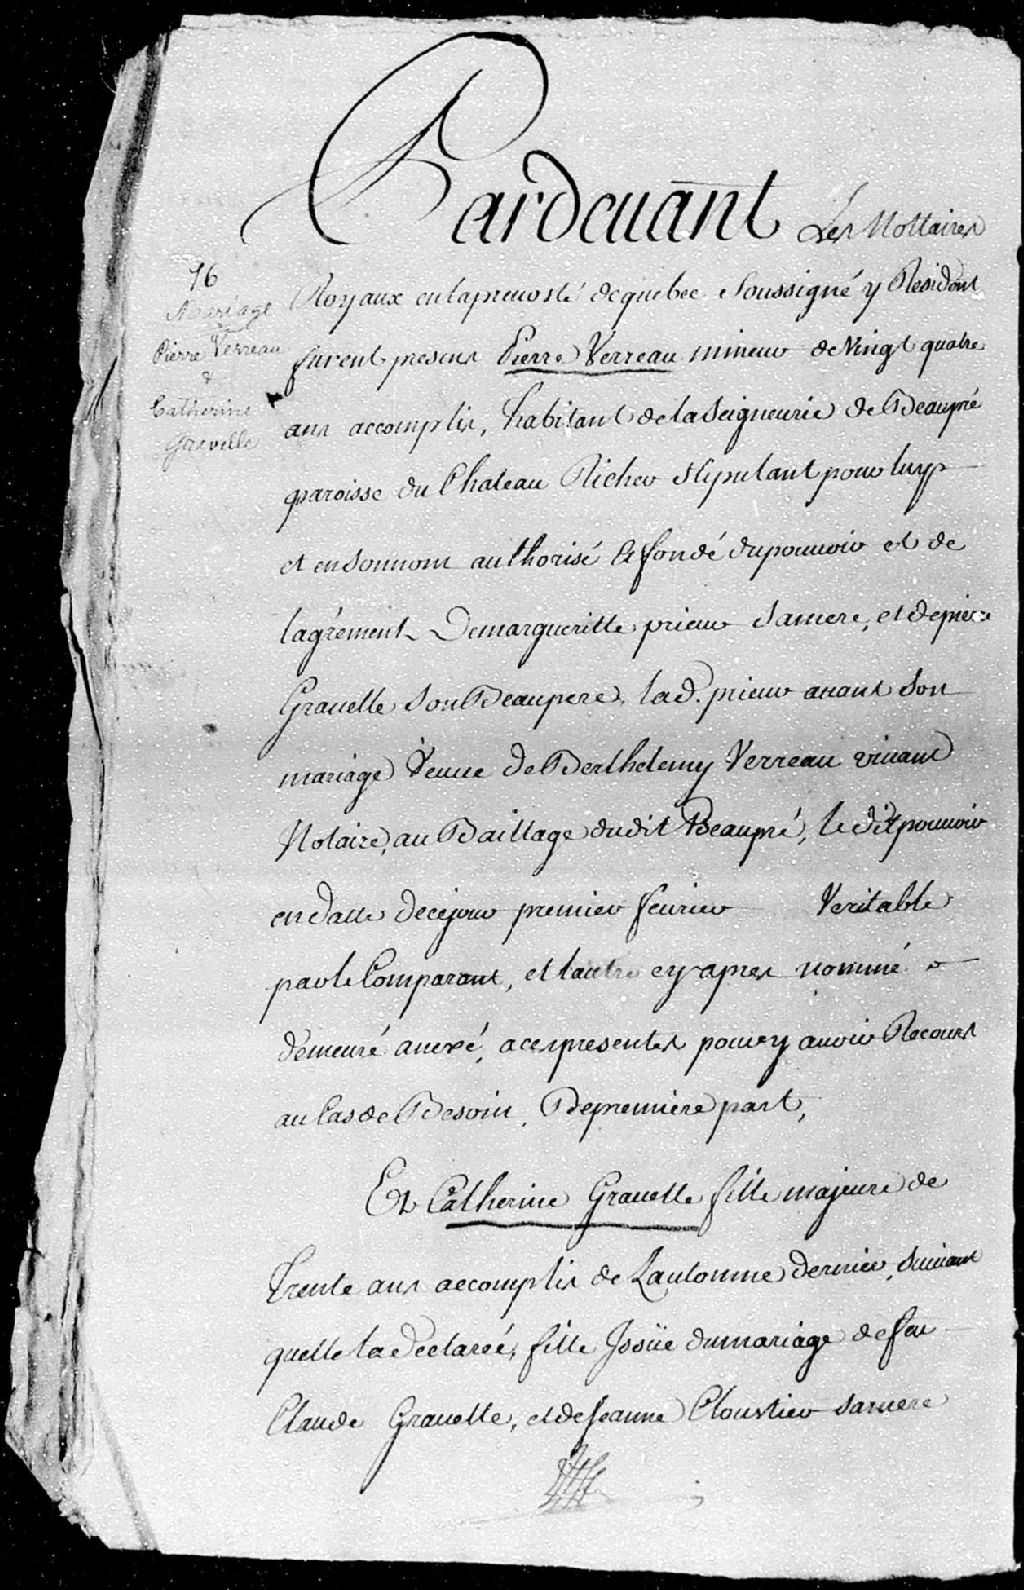 Pardevant Les Nottaires
76
Mariage
Pierre Verreau
&
Catherine
Gravelle
Royaux en la prevosté de quebec soussigné y Residant
furent presens Pierre Verreau mineur de Vingt quatre
ans accomplis, habitant de la Seigneurie de Beaupré
paroisse du Chateau Richer stipulant pour luy
et en son nom authorisé et fondé du pouvoir et de
lagrément De margueritte prieur sa mere, et de pierre
Gravelle son Beaupere, lad. prieur avant son
mariage Veuve de Berthelemy Verreau vivant
Notaire, au Baillage dudit Beaupré, le dit pouvoir
en datte de ce jour premier fevrier Veritable
par le Comparant, et lautre cy apres nommé
demeuré anexé, aces presentes pour y avoir Recours
au Cas de Besoin. De premiere part,
Et Catherine Gravelle fille majeure de
Trente ans accomplis de Lautomne dernier, suivant
quelle la declarée, fille Issüe du mariage de feu
Claude Gravelle, et de Jeanne Cloustier sa mere